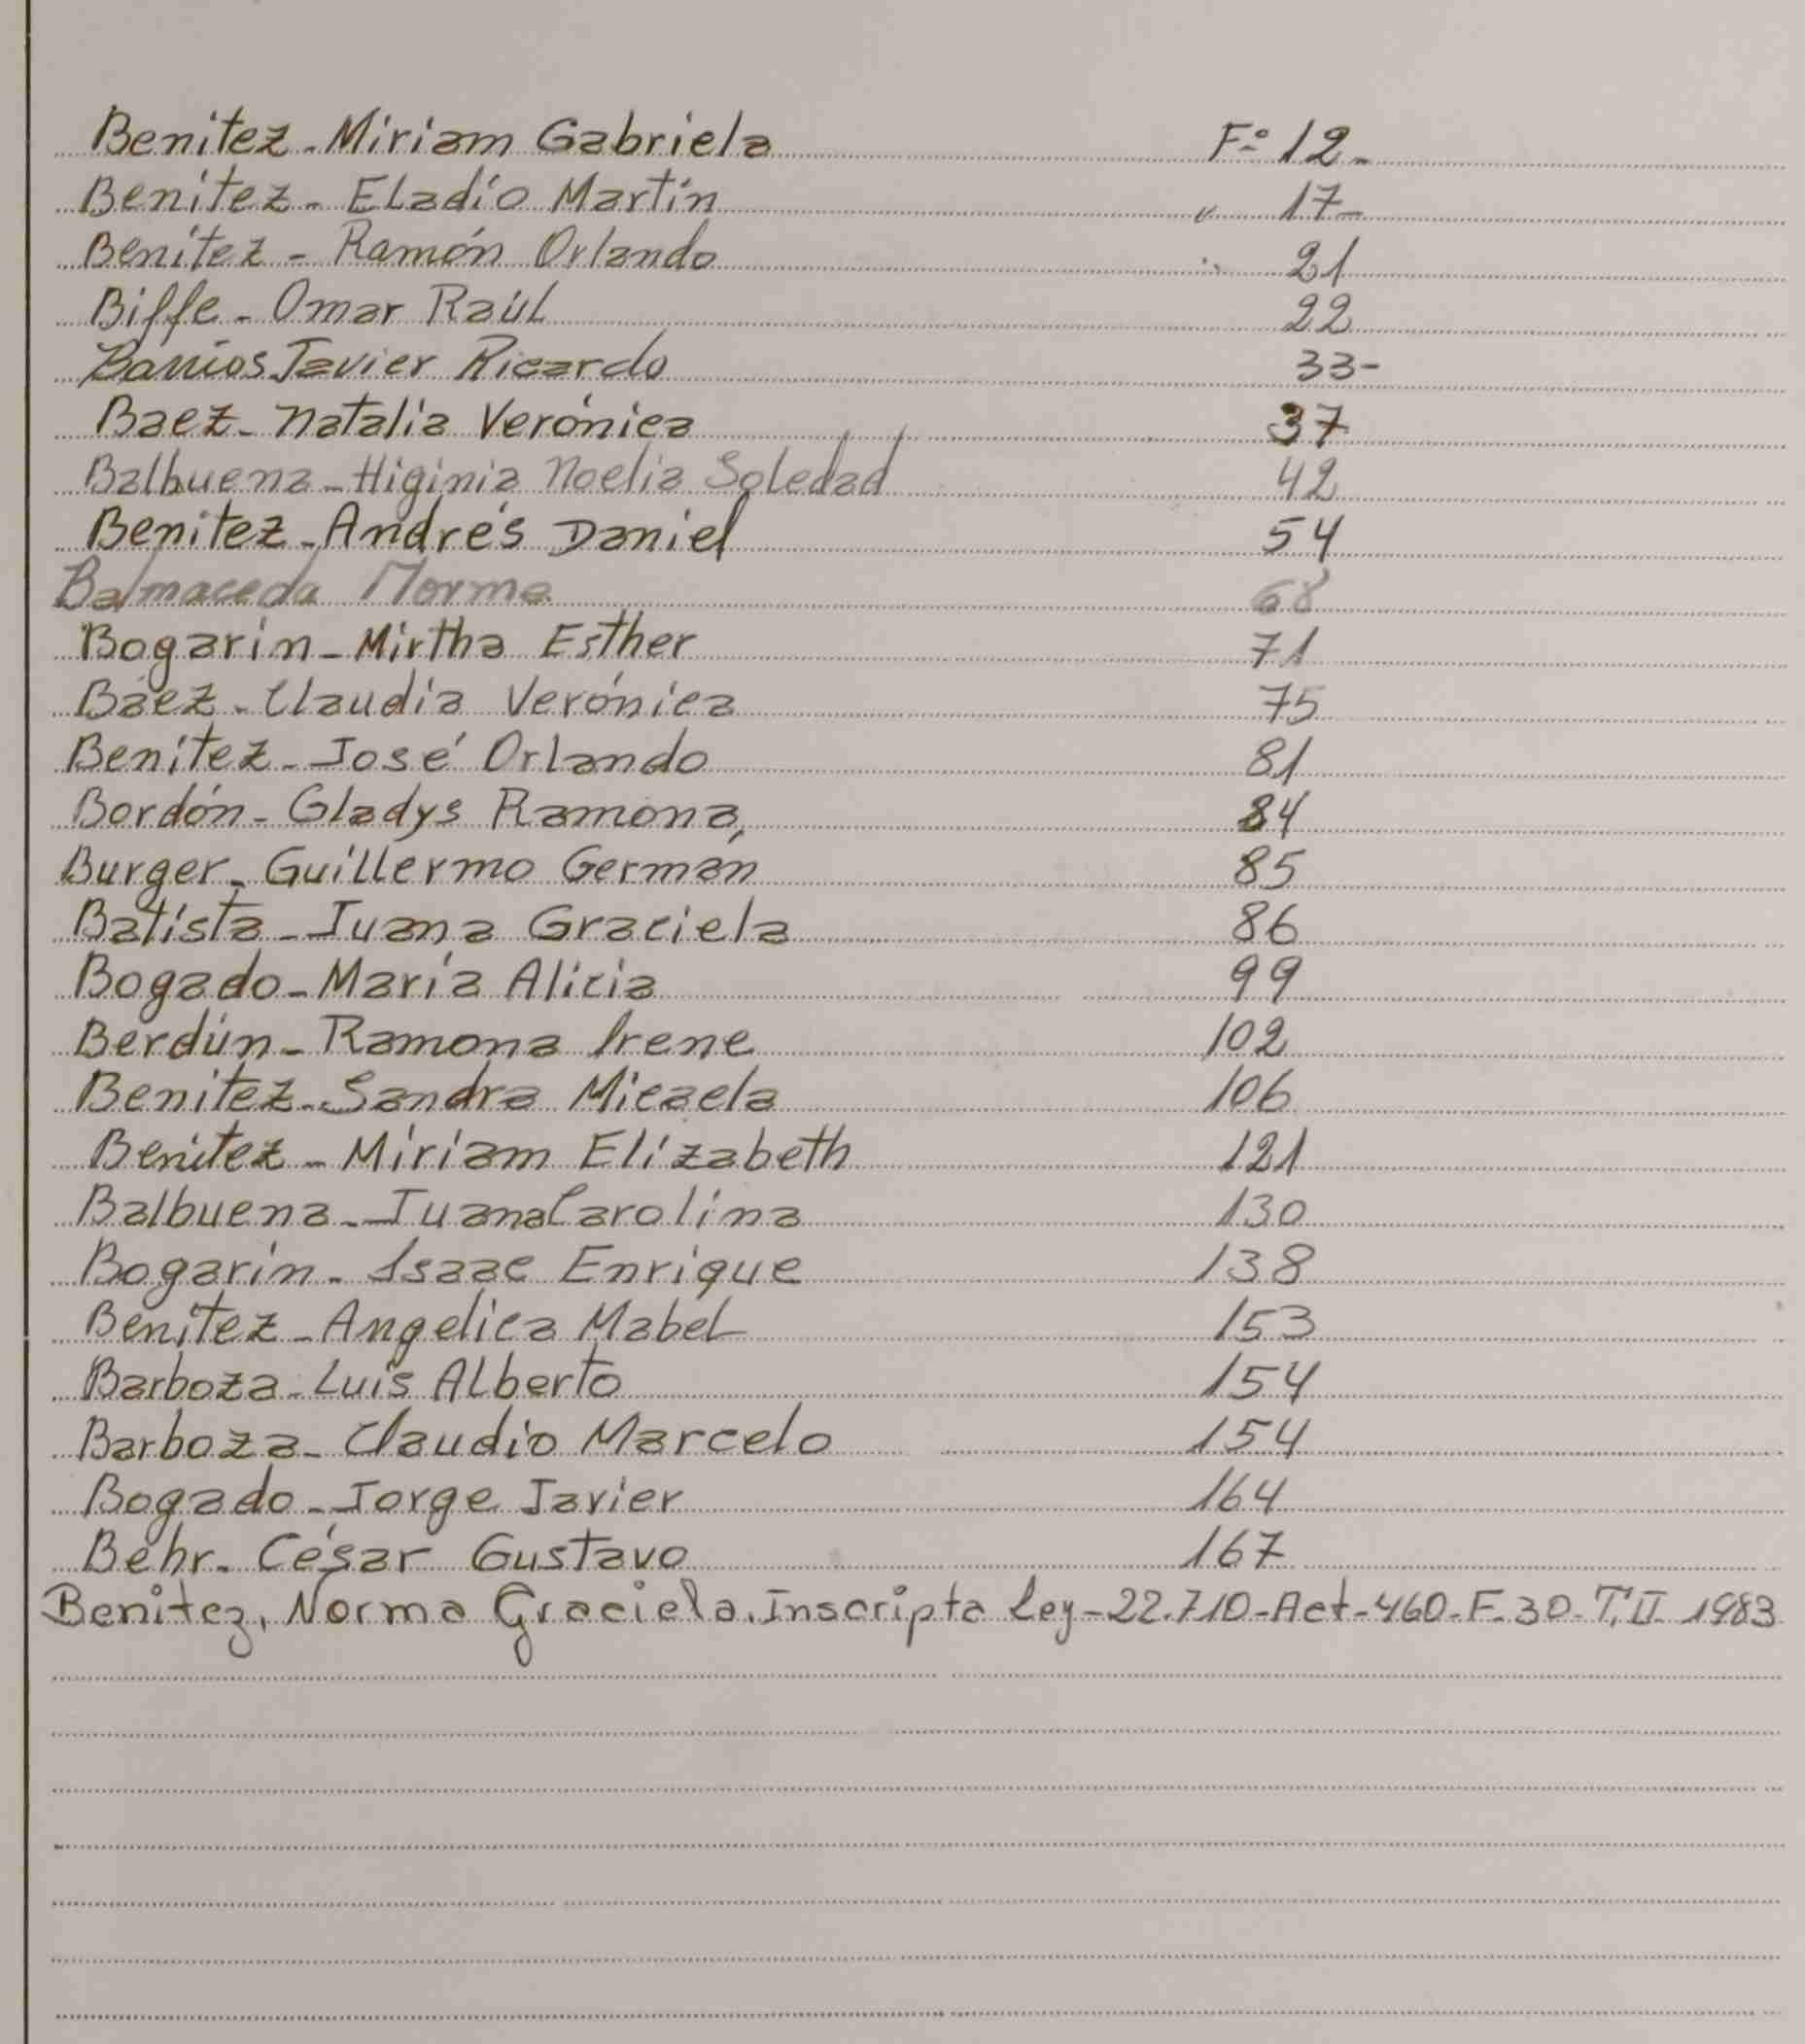 Benitez - Miriam Gabriela Fº 12 -
Benítez - Eladio Martín " 17 -
Benítez - Ramón Orlando " 21
Biffe - Omar Raúl 22
Barrios Javier Ricardo 33 -
Baez - Natalia Verónica 37
Balbuena - Higinia Noelia Soledad 42
Benitez - Andrés Daniel 54
Balmaceda Norma 68
Bogarín - Mirtha Esther 71
Báez - Claudia Verónica 75
Benítez - José Orlando 81
Bordón - Gladys Ramona 84
Burger - Guillermo Germán 85
Batista - Juana Graciela 86
Bogado - María Alicia 99
Berdún - Ramona Irene 102
Benitez - Sandra Micaela 106
Benitez - Miriam Elizabeth 121
Balbuena - Juana Carolina 130
Bogarín - Isaac Enrique 138
Benítez - Angelica Mabel 153
Barboza - Luis Alberto 154
Barboza - Claudio Marcelo 154
Bogado - Jorge Javier 164
Behr - César Gustavo 167
Benitez, Norma Graciela. Inscripta Ley - 22.710 - Act - 460 - F. 30 - T. II - 1983